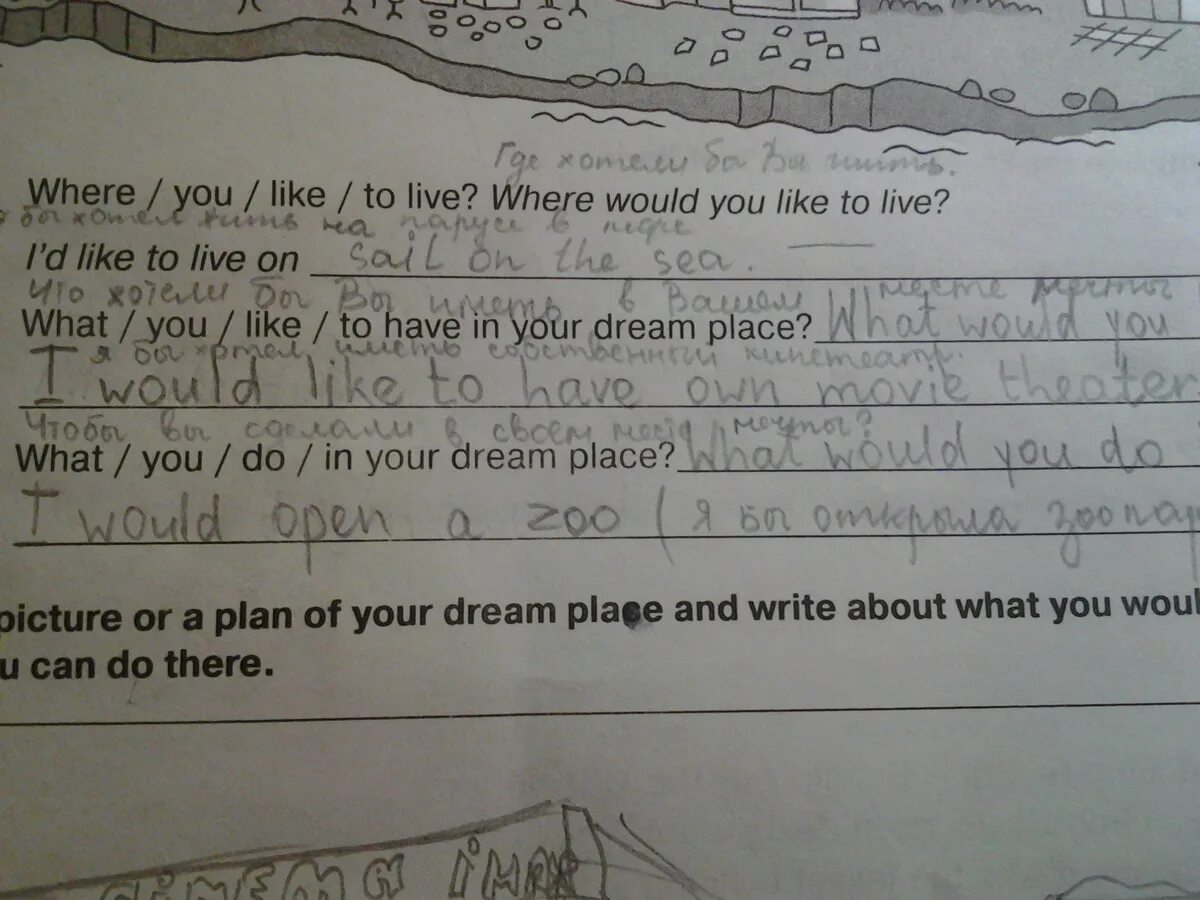 Где хотели бы Вы жить.
Where / you / like / to live? Where would you like to live?
бы хотел жить на парусе в
I'd like to live on sail on the sea.
Что хотели бы Вы иметь в Вашем месте мечты
What / you / like / to have in your dream place? What would you
я бы хотел иметь собственный кинотеатр.
I would like to have own movie theater
Чтобы вы сделали в своем мечты?
What / you / do / in your dream place? What would you do
I would open a zoo (я бы открыла зоопар
picture or a plan of your dream place and write about what you woul
u can do there.